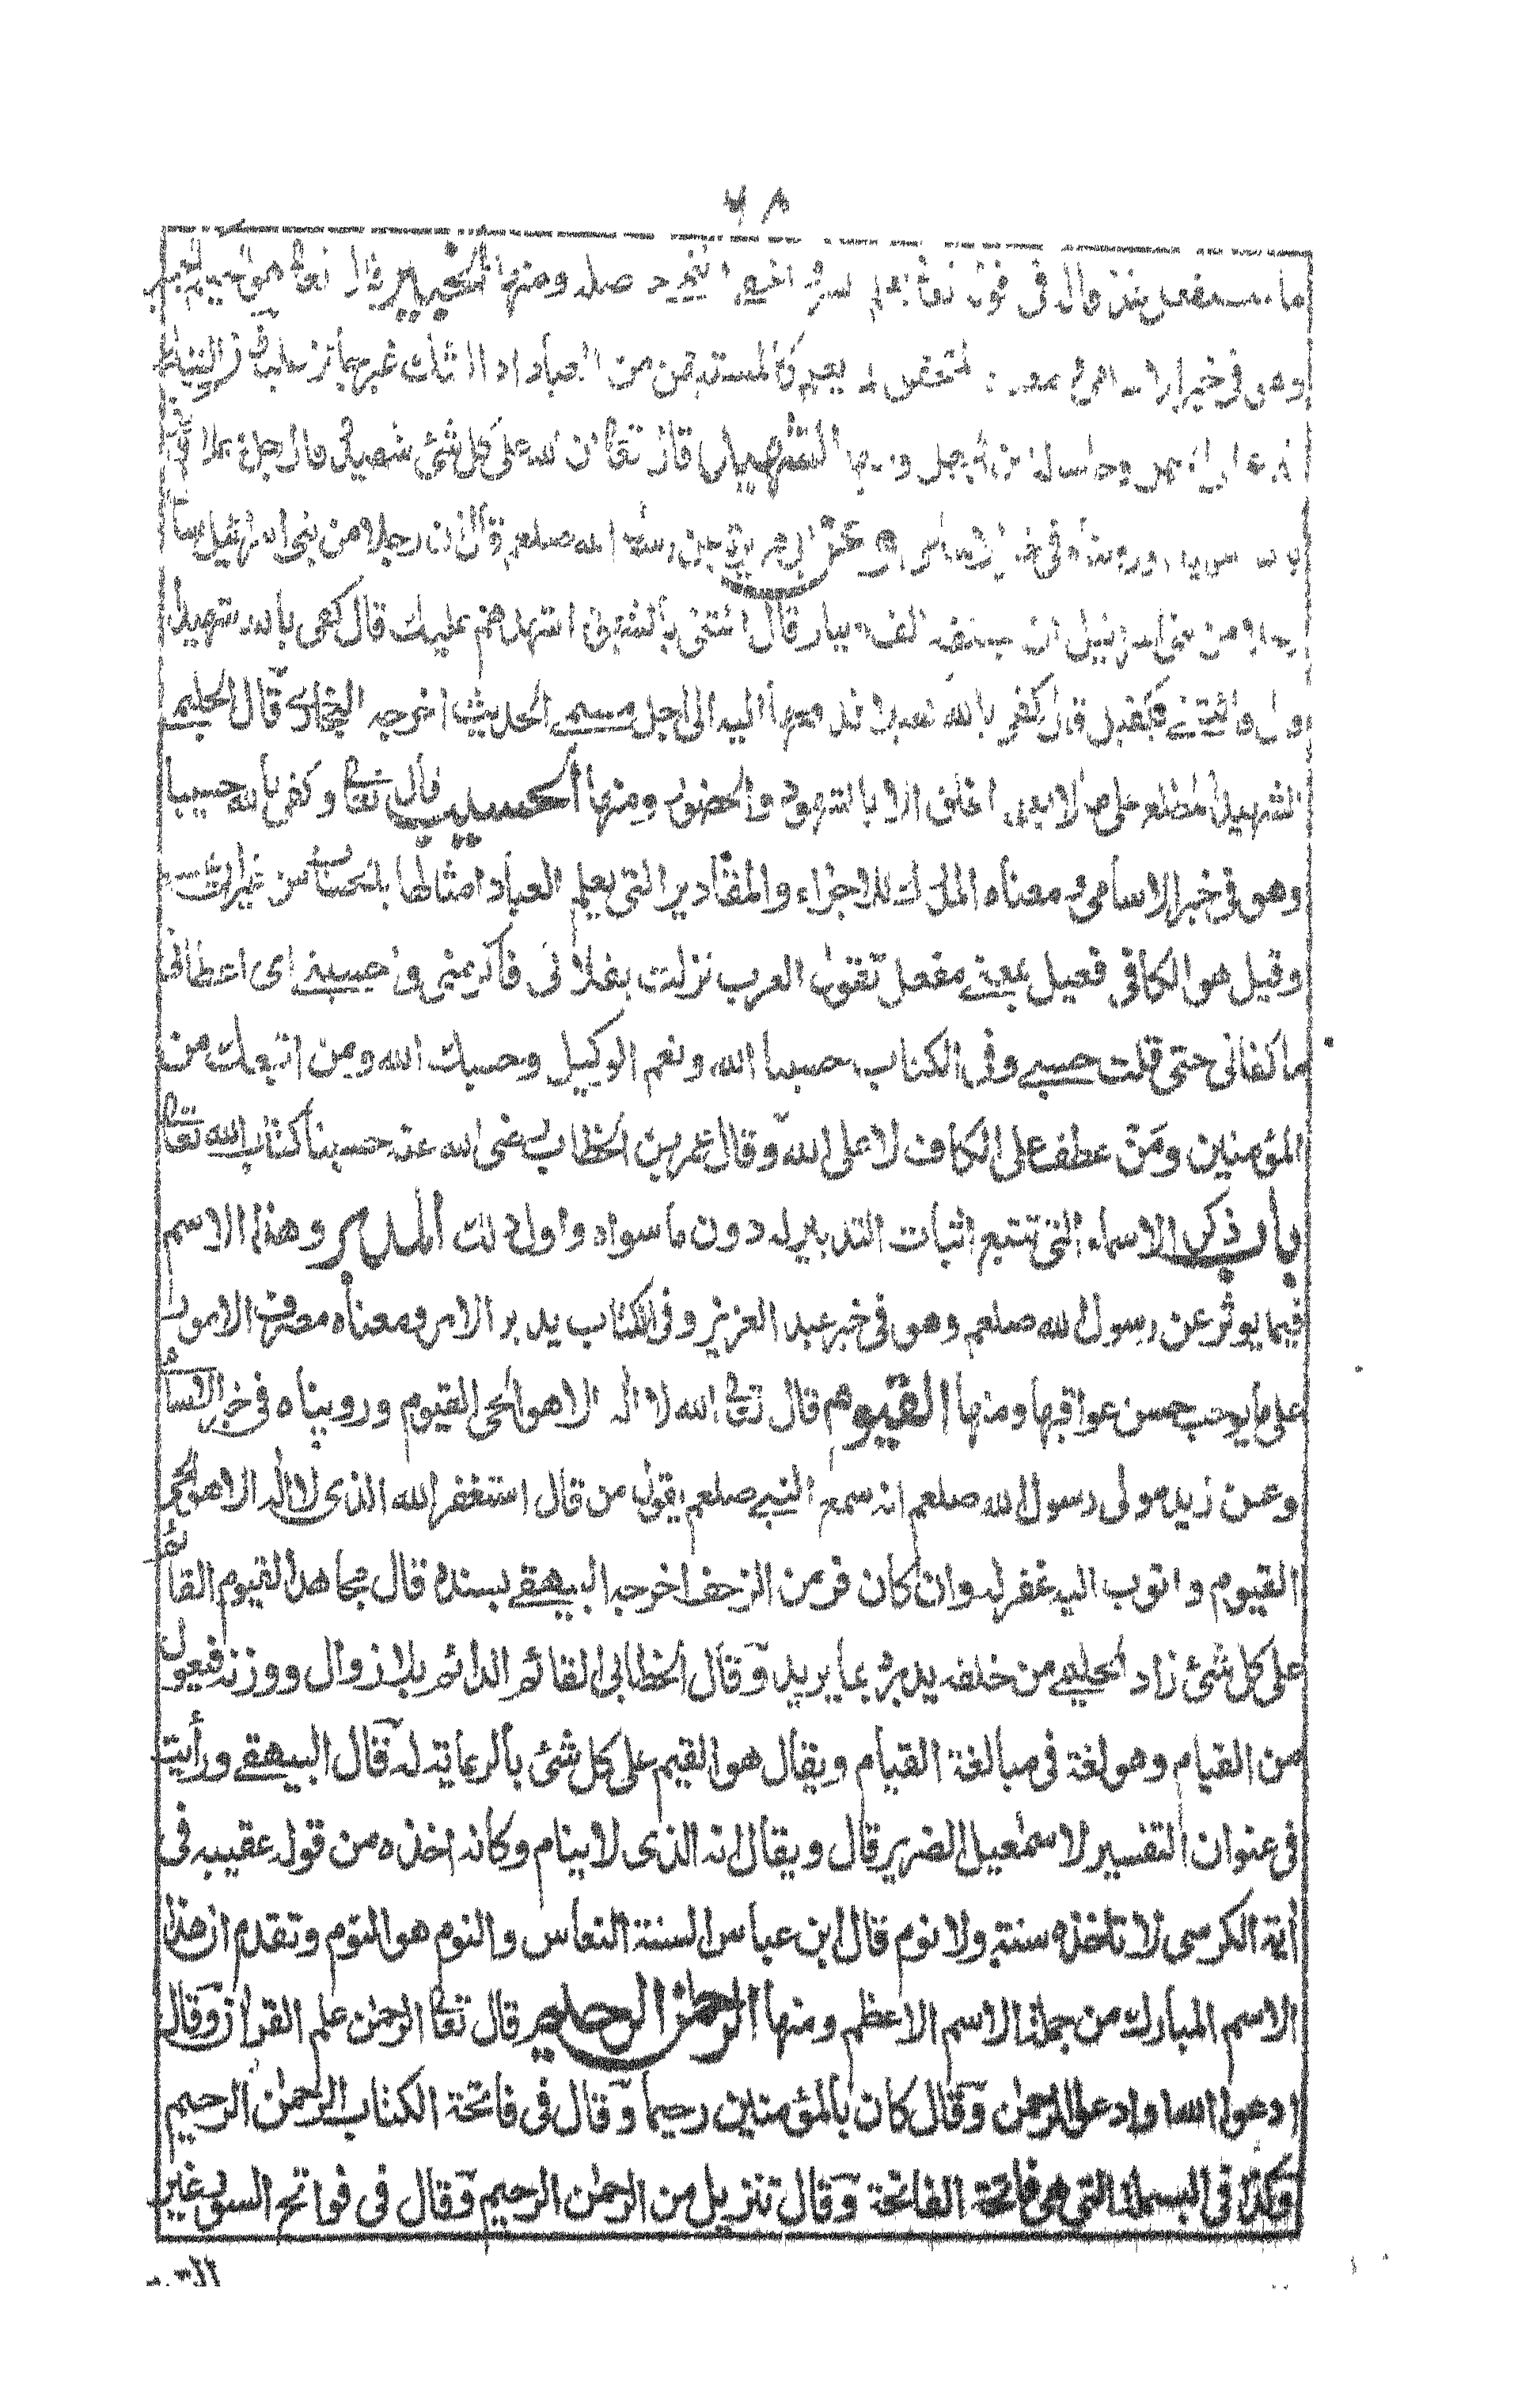 ٦٨
قال في قوله تعالى يعلم السر واخفى ومنها الخبير قال تعالى وهو الحكيم الخبير
وهو في خبر الاسامى ومعناه المتحقق لما يعلم كالمستيقن من العباد اذ الشك غير جائز عليه
ومنها الشهيد قال تعالى ان الله على كل شئ شهيد قال رجل
ورويناه في خبر الاسامى وعن ابي هريرة عن رسول الله صلعم قال ان رجلا من بنى اسرائيل سأل
رجلا من بنى اسرائيل ان يسلفه الف دينار قال ائتنى بالشهود اشهدهم عليك قال كفى بالله شهيدا
قال فائتنى بكفيل قال كفى بالله كفيلا فدفعها اليه الى اجل مسمى الحديث اخرجه البخارى قال الحليمى
الشهيد المطلع على ما لا يعلمه الخلق الا بالشهود والحضور ومنها الحسيب قال تعالى وكفى بالله حسيبا
وهو في خبر الاسامى ومعناه المدرك للاجزاء والمقادير التى يعلم العباد امثالها بالحساب من غير ان يحسب
وقيل هو الكافى فعيل بمعنى مفعل تقول العرب نزلت بفلان فاكرمنى واحسبنى اى اعطانى
ما كفانى حتى قلت حسبى وفى الكتاب حسبنا الله ونعم الوكيل وحسبك الله ومن اتبعك من
المؤمنين ومن عطف على الكاف لا على الله وقال عمر بن الخطاب رضى الله عنه حسبنا كتاب الله تعالى
باب ذكر الاسماء التى تتبع اثبات التدبير له دون ما سواه واول ذلك المدبر وهذا الاسم
فيما يوثر عن رسول الله صلعم وهو فى خبر عبد العزيز وفى الكتاب يدبر الامر ومعناه مصرف الامور
على ما يوجب حسن عواقبها ومنها القيوم قال تعالى الله لا اله الا هو الحى القيوم ورويناه فى خبر الاسامى
وعن زيد مولى رسول الله صلعم انه سمع النبى صلعم يقول من قال استغفر الله الذى لا اله الا هو الحى
القيوم واتوب اليه غفر له وان كان فر من الزحف اخرجه البيهقى بسنده قال مجاهد القيوم القائم
على كل شئ زاد الحليمى من خلقه يدبره بما يريد وقال الخطابى القائم الدائم بلا زوال ووزنه فيعول
من القيام وهو لغة فى مبالغة القيام ويقال هو القيم على كل شئ بالرعاية له قال البيهقى ورأيت
فى عنوان التفسير لاسمعيل الضرير قال ويقال انه الذى لا ينام وكانه اخذه من قوله عقيبه فى
أية الكرسى لا تاخذه سنة ولا نوم قال ابن عباس السنة النعاس والنوم هو النوم وتقدم ان هذا
الاسم المبارك من جملة الاسم الاعظم ومنها الرحمن الرحيم قال تعالى الرحمن علم القرأن وقال
ادعوا الله او ادعوا الرحمن وقال كان بالمؤمنين رحيما وقال فى فاتحة الكتاب الرحمن الرحيم
وكذا فى البسملة التى هى فاتحة الفاتحة وقال تنزيل من الرحمن الرحيم وقال فى فواتح السور غير